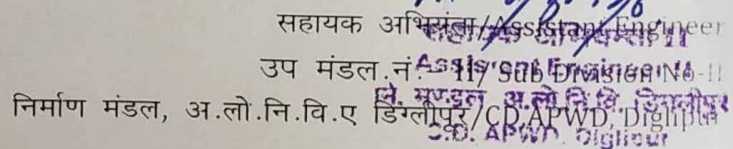 सहायक अभियंता/Assistant Engineer
उप मंडल.नं.- II/ Sub Division No-II
निर्माण मंडल, अ.लो.नि.वि.ए डिग्लीपूर/CD,APWD, Diglipur
Assistant Engineer-II
नि. मण्डल, अ.लो.नि.वि. डिगलीपुर
C.D. APWD, Diglipur